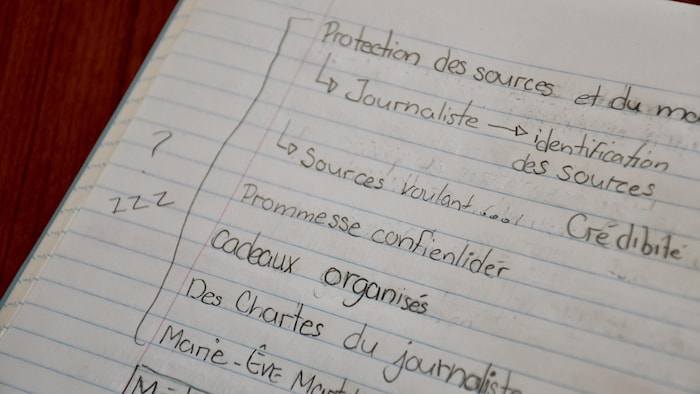 Protection des sources et du
↳ Journaliste → identification
des sources
?
↳ Sources voulant....
Crédibité
zzz
Prommesse confienlider
cadeaux organisés
Des Chartes du journaliste
Marie-Ève